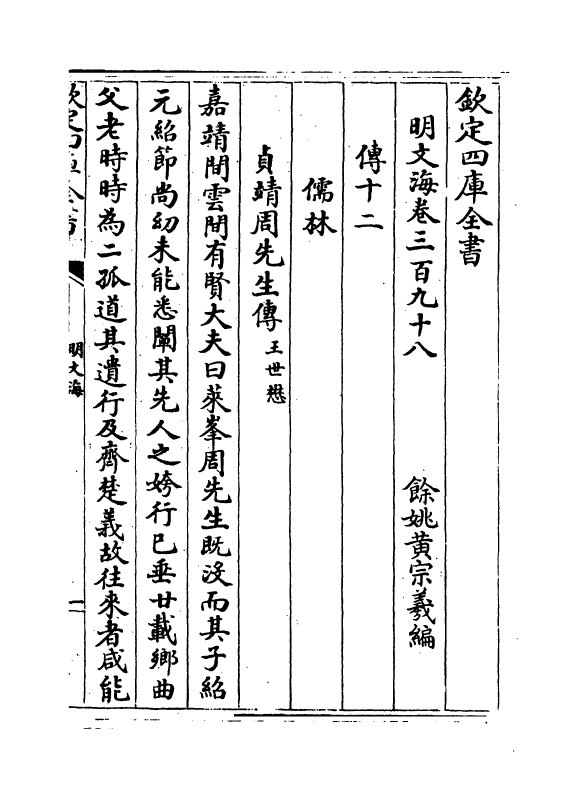 欽定四庫全書
明文海卷三百九十八
餘姚黄宗羲編
傳十二
儒林
貞靖周先生傳王世懋
嘉靖間雲間有賢大夫曰萊峯周先生既沒而其子紹
元紹節尚幼未能悉闡其先人之姱行已垂廿載鄉曲
父老時時為二孤道其遺行及齊楚義故往來者咸能
明文海
一